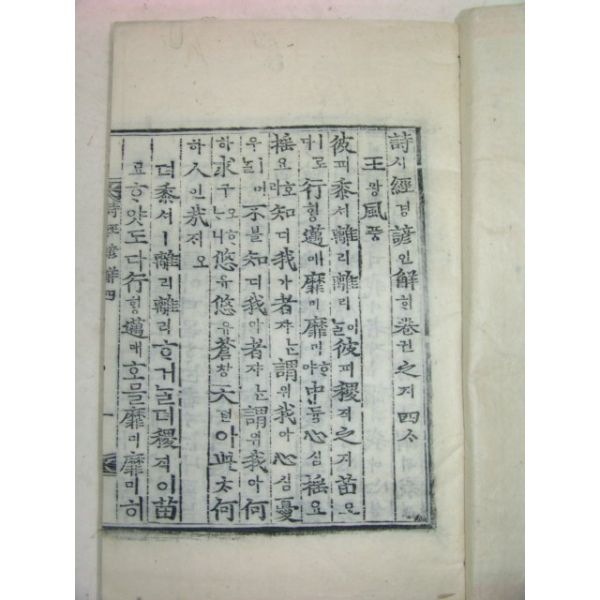 詩시經경諺언解ᄒᆡ卷권之지四ᄉᆞ
王왕風풍
彼피黍셔離리離리이늘彼피稷직之지苗묘
ㅣ로다行ᄒᆡᆼ邁매靡미靡미ᄒᆞ야中듕心심搖요
搖요호라知디我아者쟈ᄂᆞᆫ謂위我아心심憂
우ㅣ어ᄂᆞᆯ不블知디我아者쟈ᄂᆞᆫ謂위我아何
하求구오ᄒᆞᄂᆞ니悠유悠유蒼창天텬아此ᄎᆞ何
하人인哉ᄌᆡ오
뎌黍셔ㅣ離리離리ᄒᆞ거늘뎌稷직이苗
묘ᄒᆞ얏도다行ᄒᆡᆼ邁매호믈靡미靡미히
詩經諺解四 一